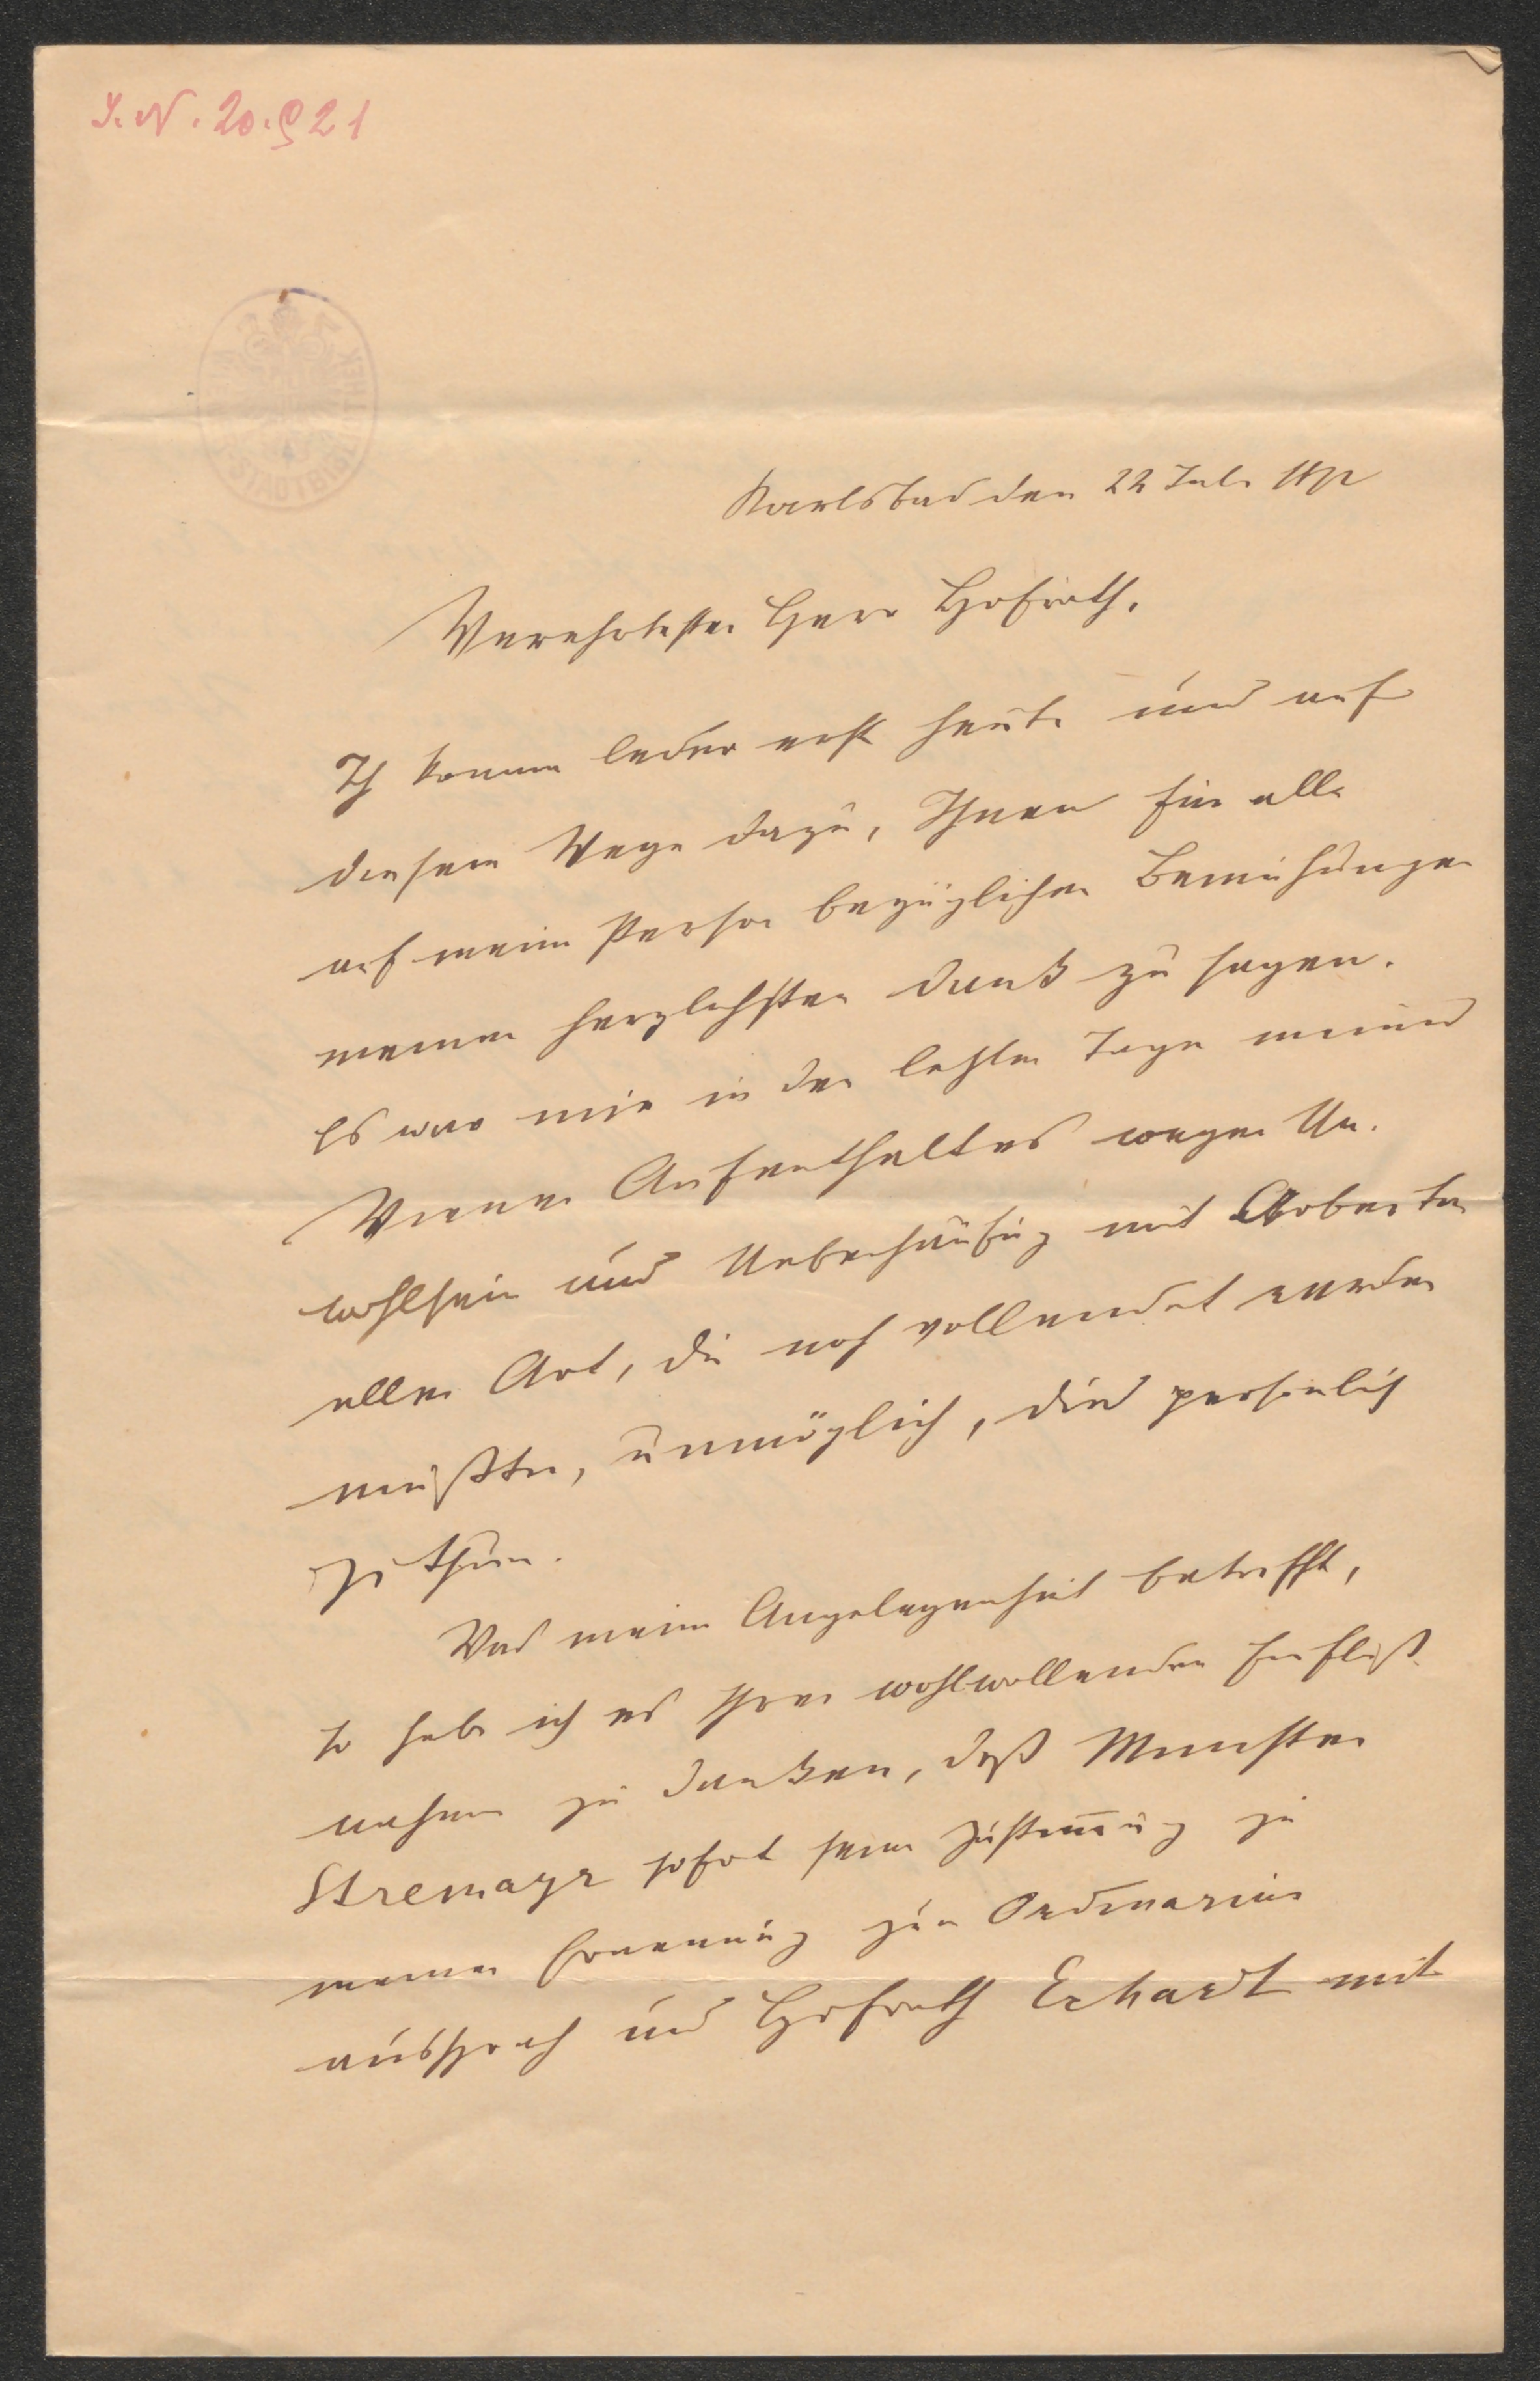 I. N. 20.921
STADTBIBLIOTHEK
Karlsbad den 22 Juli
Verehrtester Herr Hofrath,
Ich komme leider erst heute und auf
diesem Wege dazu, Ihnen für alle
auf meine Person bezüglichen Bemühungen
meinen herzlichsten Dank zu sagen.
Es war mir in den letzten Tagen meines
Wiener Aufenthaltes wegen Un-
wohlsein und Ueberhäufung mit Arbeiten
aller Art, die noch vollendet werden
mußten, unmöglich, dies persönlich
zu thun.
Was meine Angelegenheit betrifft,
so habe ich es Ihrer wohlwollenden Einfluß-
nahme zu danken, daß Minister
Stremayr sofort seine Zustim̅ung zu
meiner Ernennung zum Ordinarius
aussprach und Hofrath Erhardt mit